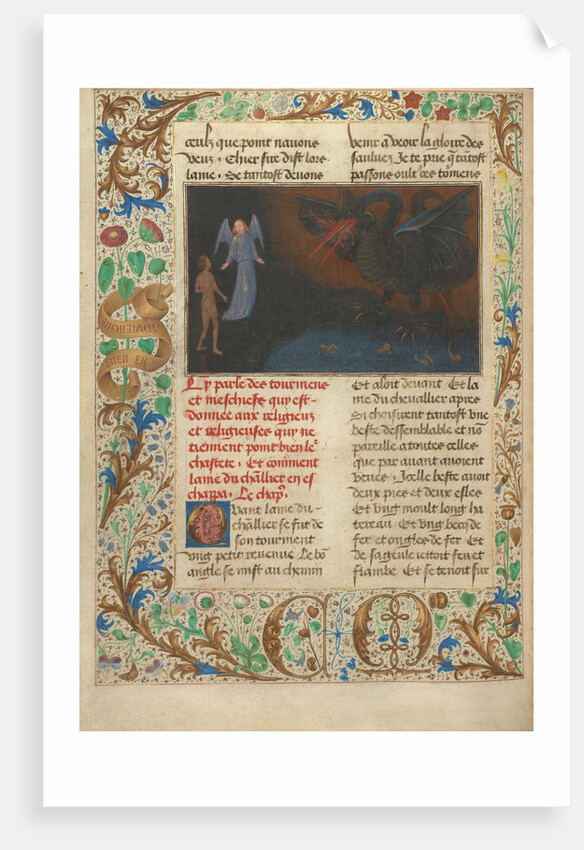 ceulz que point nauons
veuz . Chier sire dist lors
lame . Se tantost deuons
venir a veoir la gloire des
sauluez Je te prie q̄ tantost
passons oult̄ ces tormens
Cy parle des tourmens
et meschiefz quy est
donnee aux religieux
et religieuses quy ne
tiennent point bien le᷑
chastete . Et comment
lame du ch̄llier en es
chappa . Le chap̄
Quant lame du
ch̄allier se fut de
son tourment
vng petit reuenue Le bō
angle se mist au chemin
Et aloit deuant Et la
me du cheuallier apres
Si choisirent tantost vne
beste dessemblable et nō
pareille a toutes celles
que par auant auoient
veues . Jcelle beste auoit
deux pies et deux esles
Et vng moult long ha
tereau Et vng becq de
fer et ongles de fer Et
de sa geule iettoit feu et
flambe Et se tenoit sur